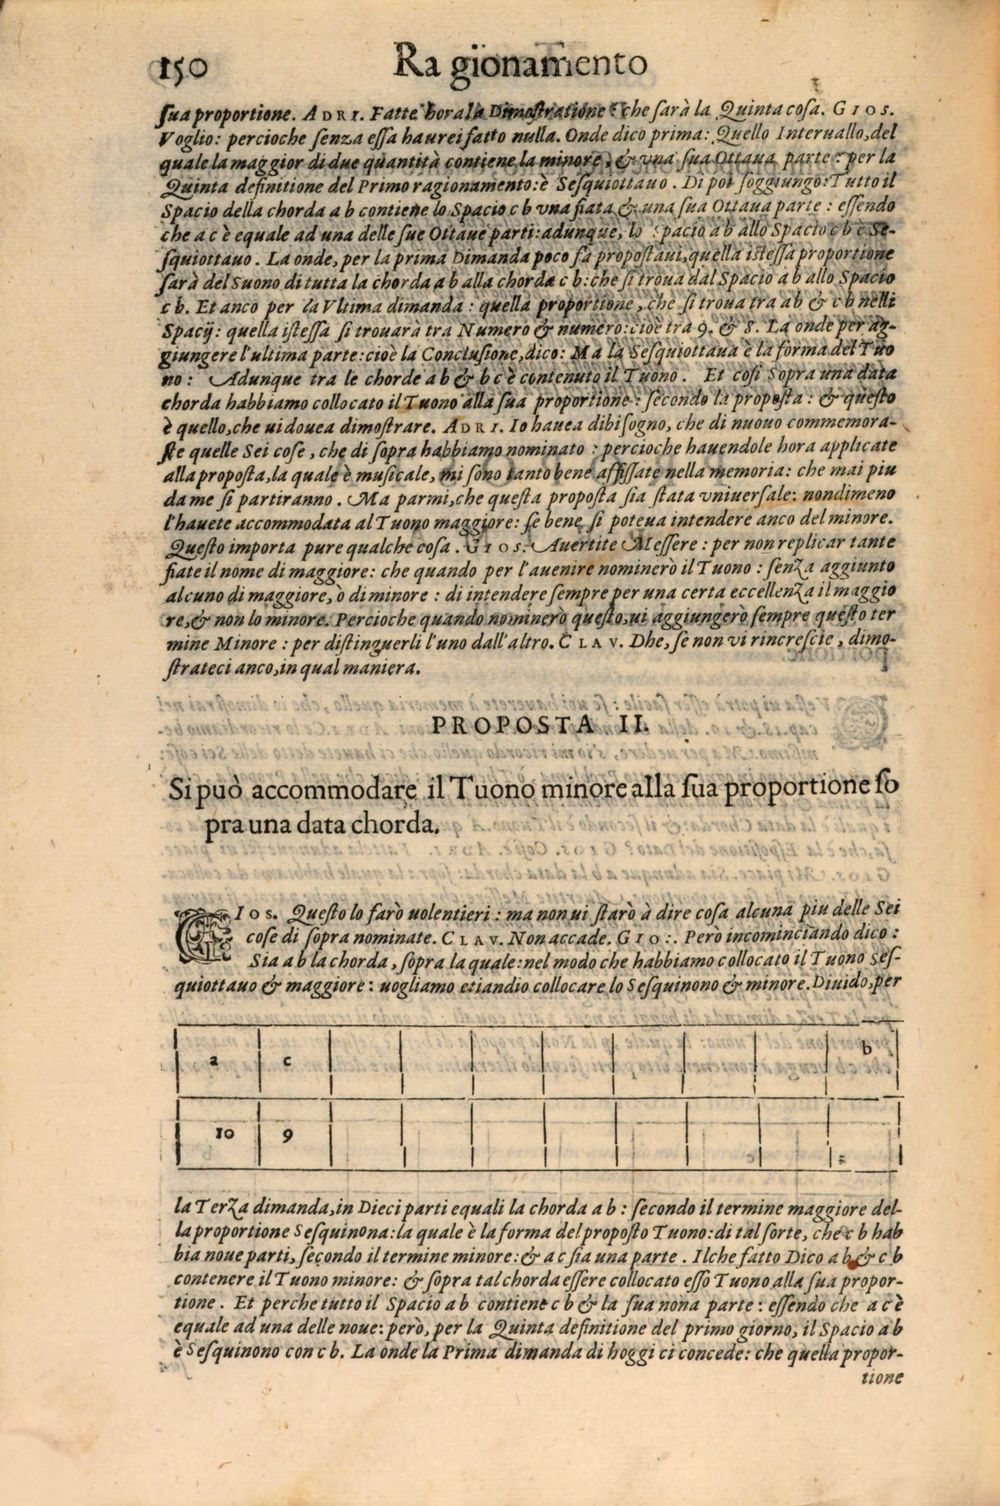 150 Ra gionamento
ſua proportione. ADRI. Fatte hora la Dimoſtratione: che ſarà la Quinta coſa. GIOS.
Voglio: percioche ſenza eſſa haurei fatto nulla. Onde dico prima: Quello Interuallo, del
quale la maggior di due quantità contiene la minore, & vna ſua Ottaua parte: per la
Quinta definitione del Primo ragionamento: è Seſquiottauo. Di poi ſoggiungo: Tutto il
Spacio della chorda a b contiene lo Spacio c b vna fiata & una ſua Ottaua parte: eſſendo
che a c è equale ad una delle ſue Ottaue parti: adunque, lo Spacio a b allo Spacio c b è Se-
ſquiottauo. La onde, per la prima Dimanda poco fà propoſtaui, quella iſteſſa proportione
ſarà del Suono di tutta la chorda a b alla chorda c b: che ſi troua dal Spacio a b allo Spacio
c b. Et anco per la Vltima dimanda: quella proportione, che ſi troua tra a b & c b nelli
Spacij: quella iſteſſa ſi trouarà tra Numero & numero: cioè tra 9. & 8. La onde per ag-
giungere l'ultima parte: cioè la Concluſione, dico: Ma la Seſquiottaua è la forma del Tuo
no: Adunque tra le chorde a b & b c è contenuto il Tuono. Et coſi Sopra una data
chorda habbiamo collocato il Tuono alla ſua proportione: ſecondo la propoſta: & queſto
è quello, che ui douea dimoſtrare. ADRI. Io hauea dibiſogno, che di nuouo commemora-
ſte quelle Sei coſe, che di ſopra habbiamo nominato: percioche hauendole hora applicate
alla propoſta, la quale è muſicale, mi ſono tanto bene affiſſate nella memoria: che mai piu
da me ſi partiranno. Ma parmi, che queſta propoſta ſia ſtata vniuerſale: nondimeno
l'hauete accommodata al Tuono maggiore: ſe bene ſi poteua intendere anco del minore.
Queſto importa pure qualche coſa. GIOS. Auertite Meſſere: per non replicar tante
fiate il nome di maggiore: che quando per l'auenire nominerò il Tuono: ſenza aggiunto
alcuno di maggiore, ò di minore: di intendere ſempre per una certa eccellenza il maggio
re, & non lo minore. Percioche quando nominerò queſto, ui aggiungerò ſempre queſto ter
mine Minore: per diſtinguerli l'uno dall'altro. CLAV. Dhe, ſe non vi rincreſcie, dimo-
ſtrateci anco, in qual maniera.
PROPOSTA II.
Si può accommodare il Tuono minore alla ſua proportione ſo
pra una data chorda.
GIOS. Queſto lo farò uolentieri: ma non ui ſtarò à dire coſa alcuna piu delle Sei
coſe di ſopra nominate. CLAV. Non accade. GIO:. Però incominciando dico:
Sia a b la chorda, ſopra la quale: nel modo che habbiamo collocato il Tuono seſ-
quiottauo & maggiore: uogliamo etiandio collocare lo Seſquinono & minore. Diuido, per
a c b
10 9
la Terza dimanda, in Dieci parti equali la chorda a b: ſecondo il termine maggiore del-
la proportione Seſquinona: la quale è la forma del propoſto Tuono: di tal ſorte, che c b hab
bia noue parti, ſecondo il termine minore: & a c ſia una parte. Il che fatto Dico a b & c b
contenere il Tuono minore: & ſopra tal chorda eſſere collocato eſſo Tuono alla ſua propor-
tione. Et perche tutto il Spacio a b contiene c b & la ſua nona parte: eſſendo che a c è
equale ad una delle noue: però, per la Quinta definitione del primo giorno, il Spacio a b
è Seſquinono con c b. La onde la Prima dimanda di hoggi ci concede: che quella propor-
tione